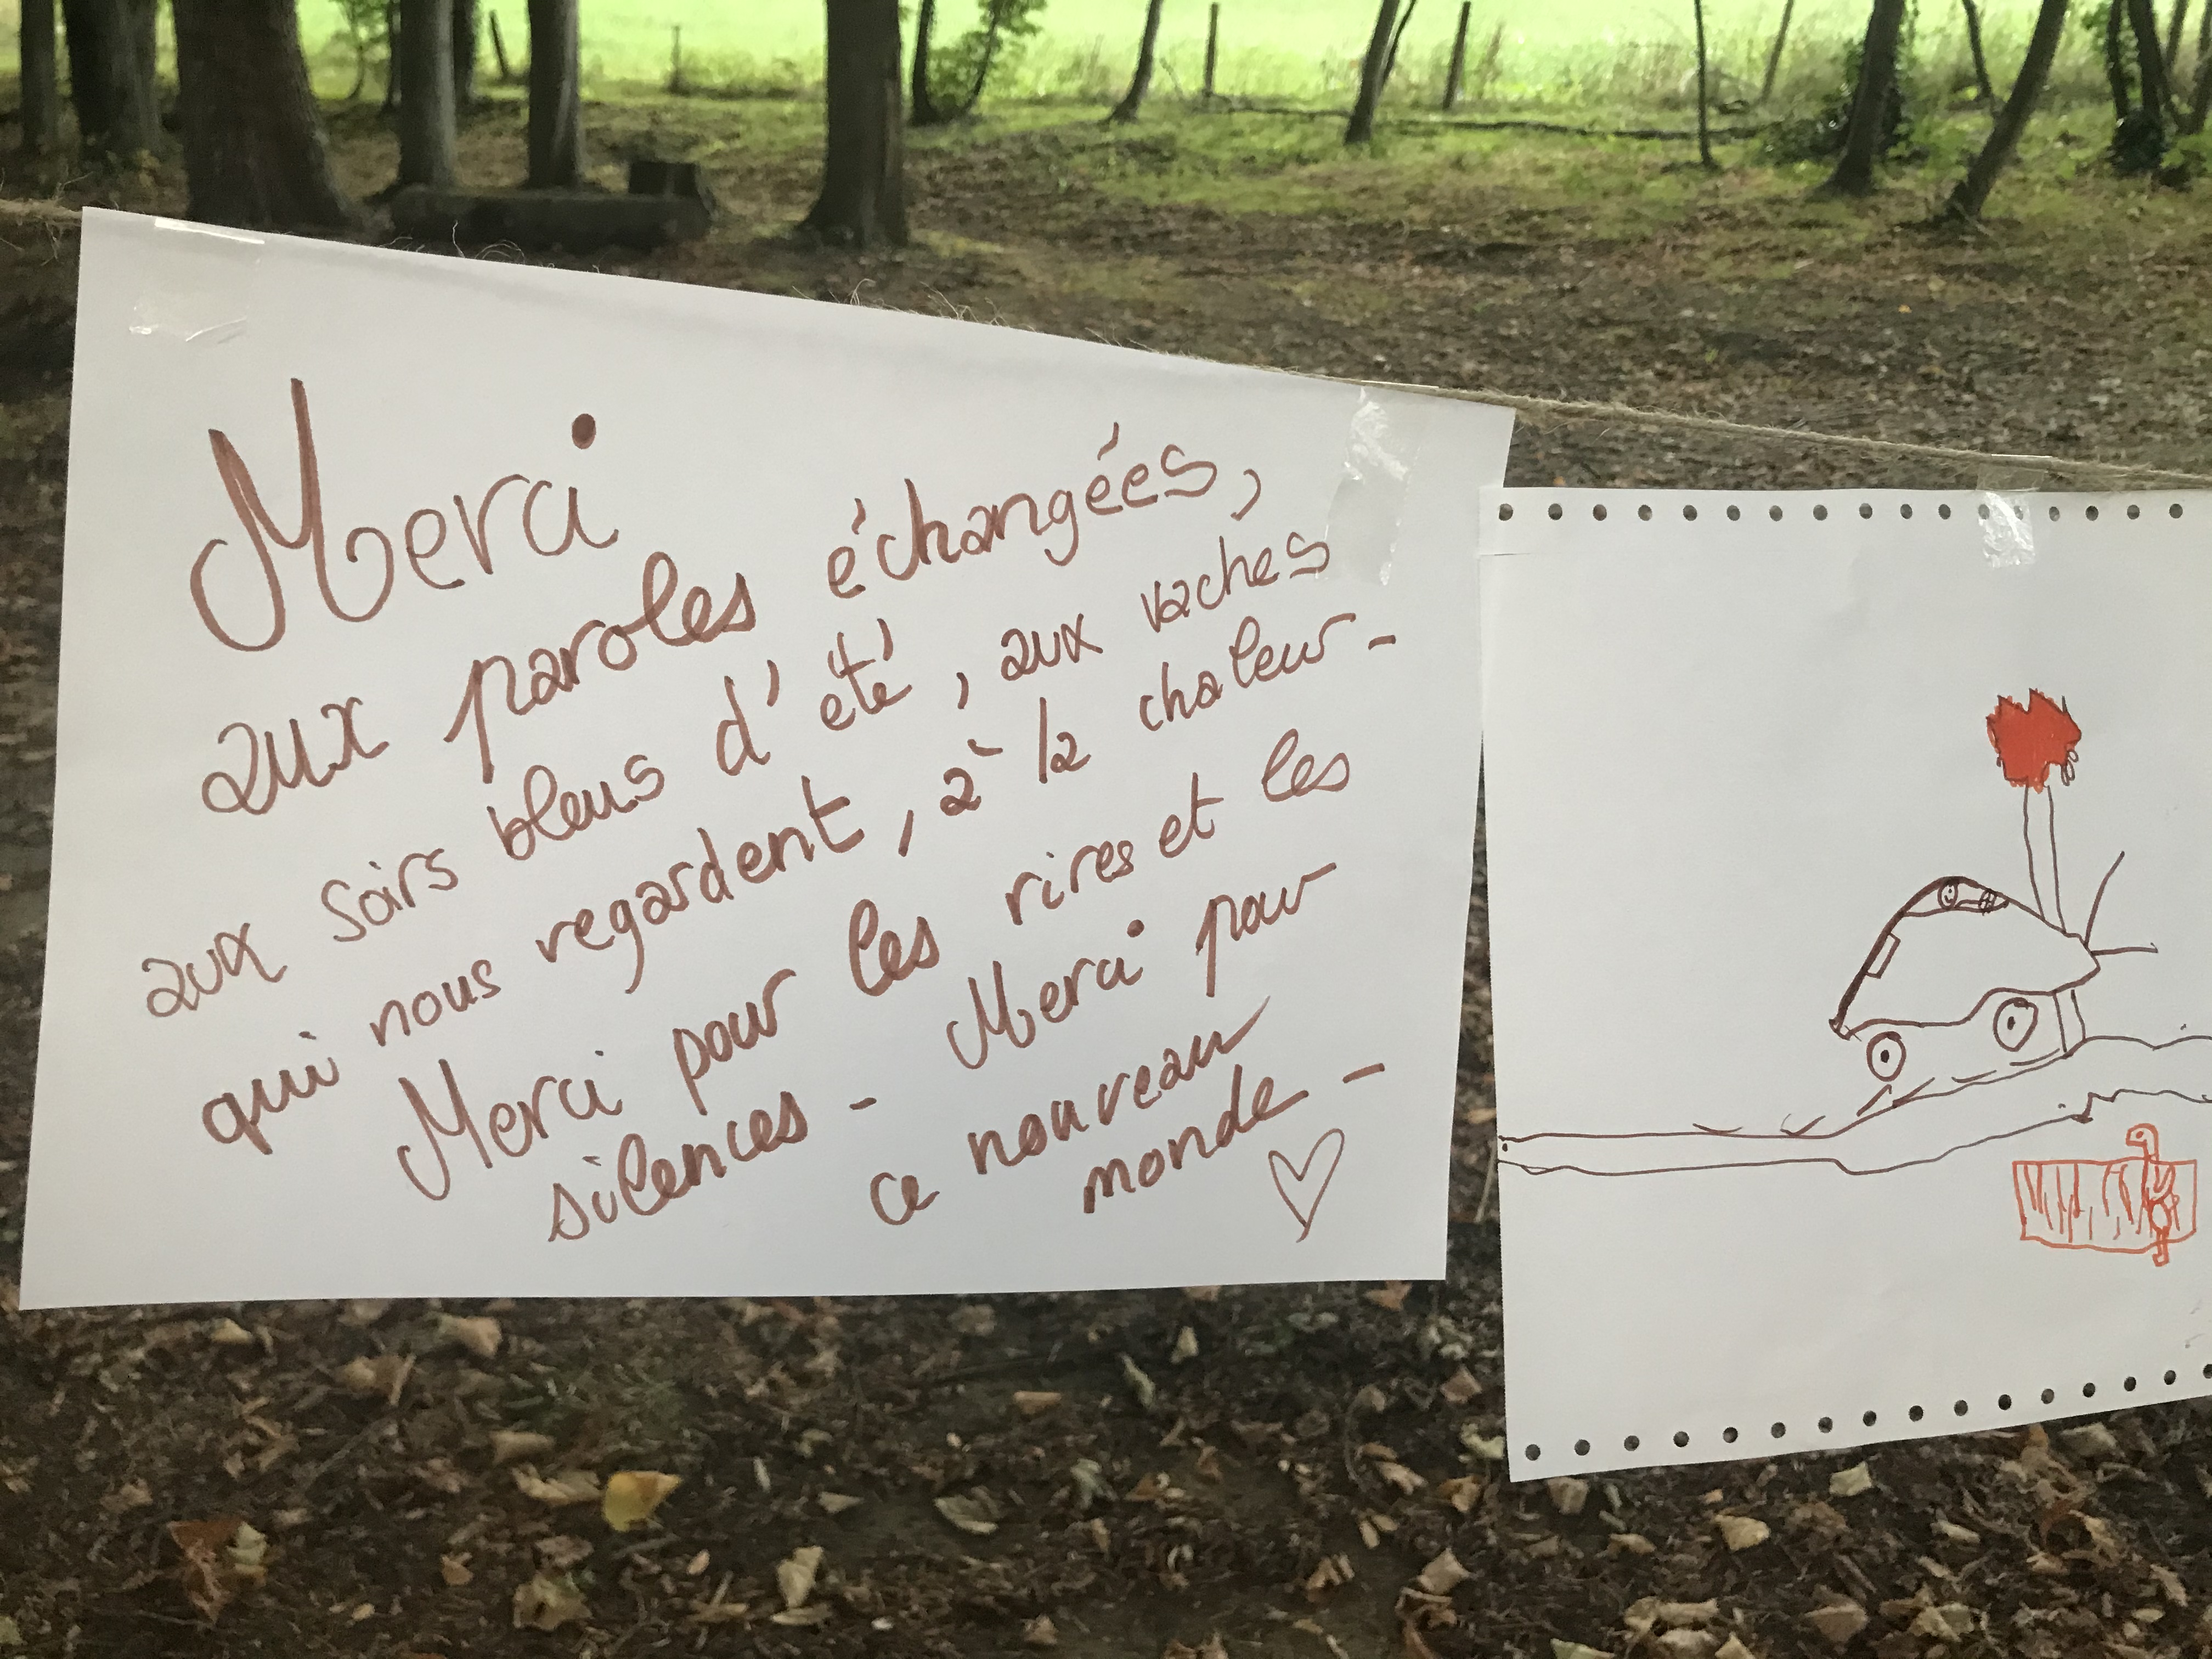 Merci
aux paroles échangées,
aux soirs bleus d'été, aux vaches
qui nous regardent, à la chaleur -
Merci pour les rires et les
silences - Merci pour
ce nouveau
monde -